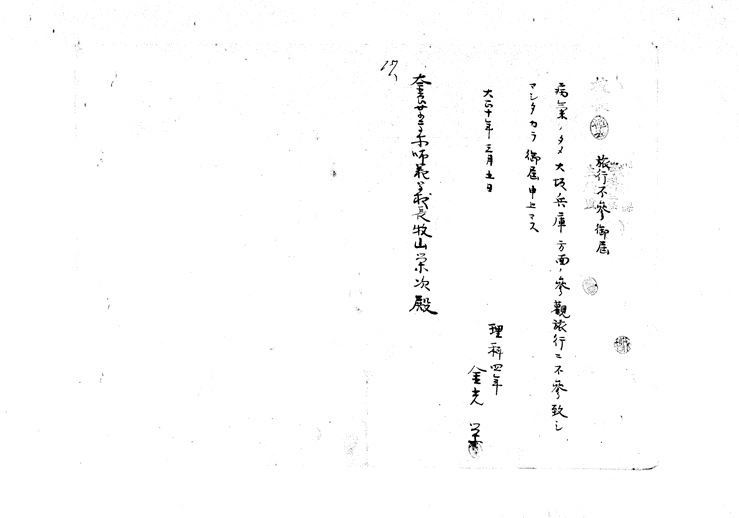 旅行不參御屆
病氣ノタメ大坂兵庫方面ノ參觀旅行ニ不參致シ
マシタカラ御屆申上マス
大正十年三月五日
理科四年
金光
奈良女子高等師範學校長牧山榮次殿